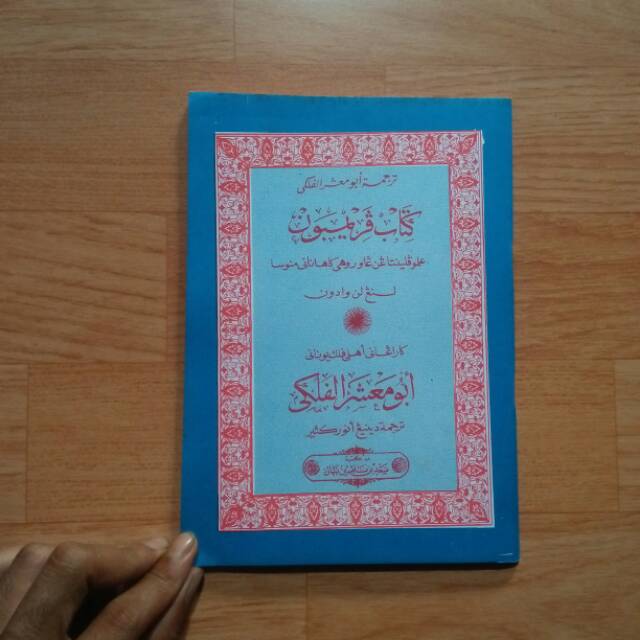 ترجمة أبو معشر الفلكى
كتاب ڤريمبون
علم ڤلينتاغن غاوروهى كاهنانى منوسا
لنڠ لن وادون
كاراڠانى أهلى فلك يونانى
أبو معشر الفلكى
ترجمة دينيڠ أنور كثير